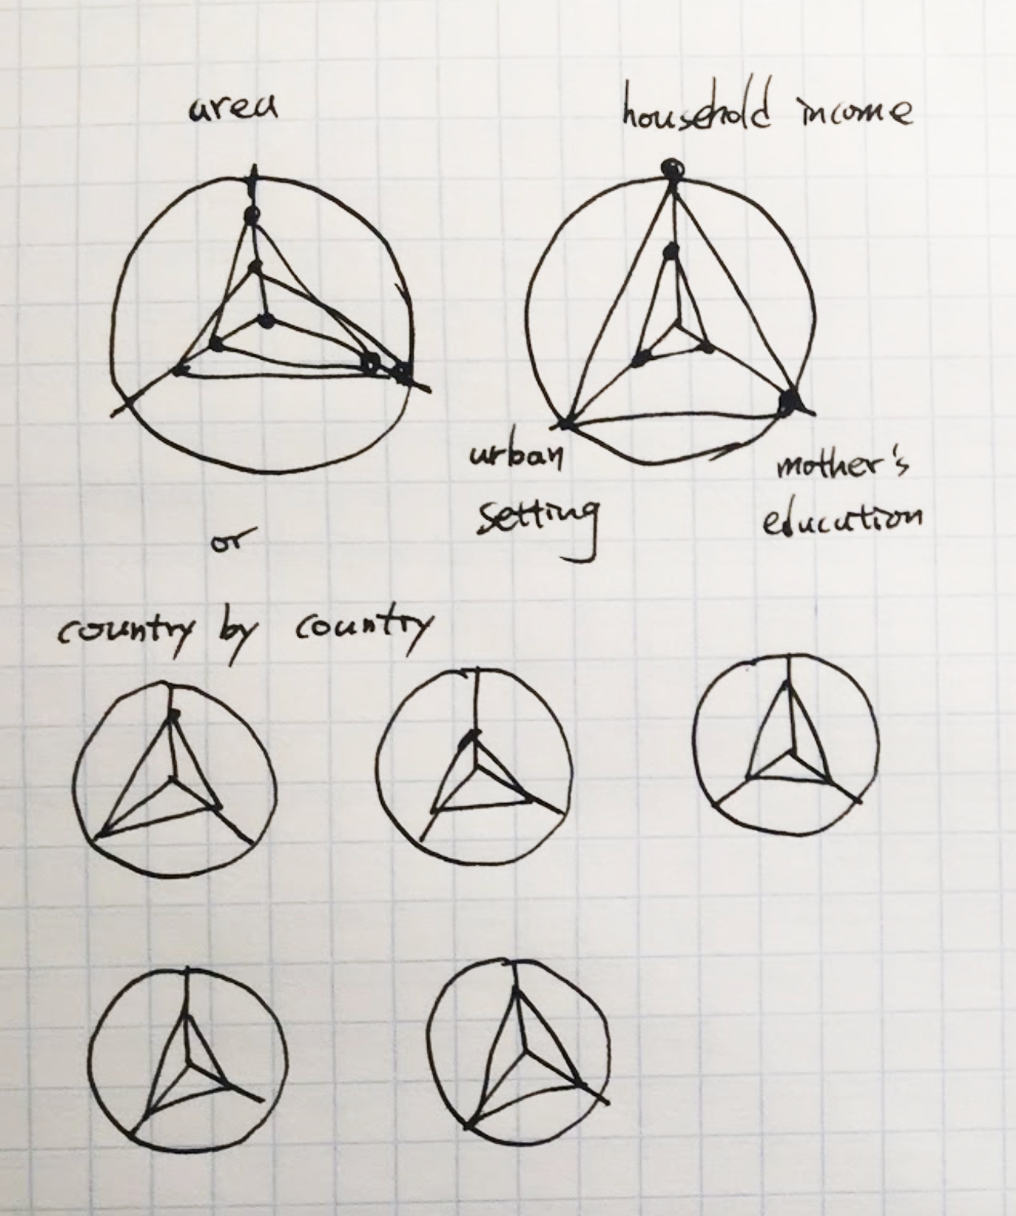 area
household income
urban
setting
mother's
education
or
country by country